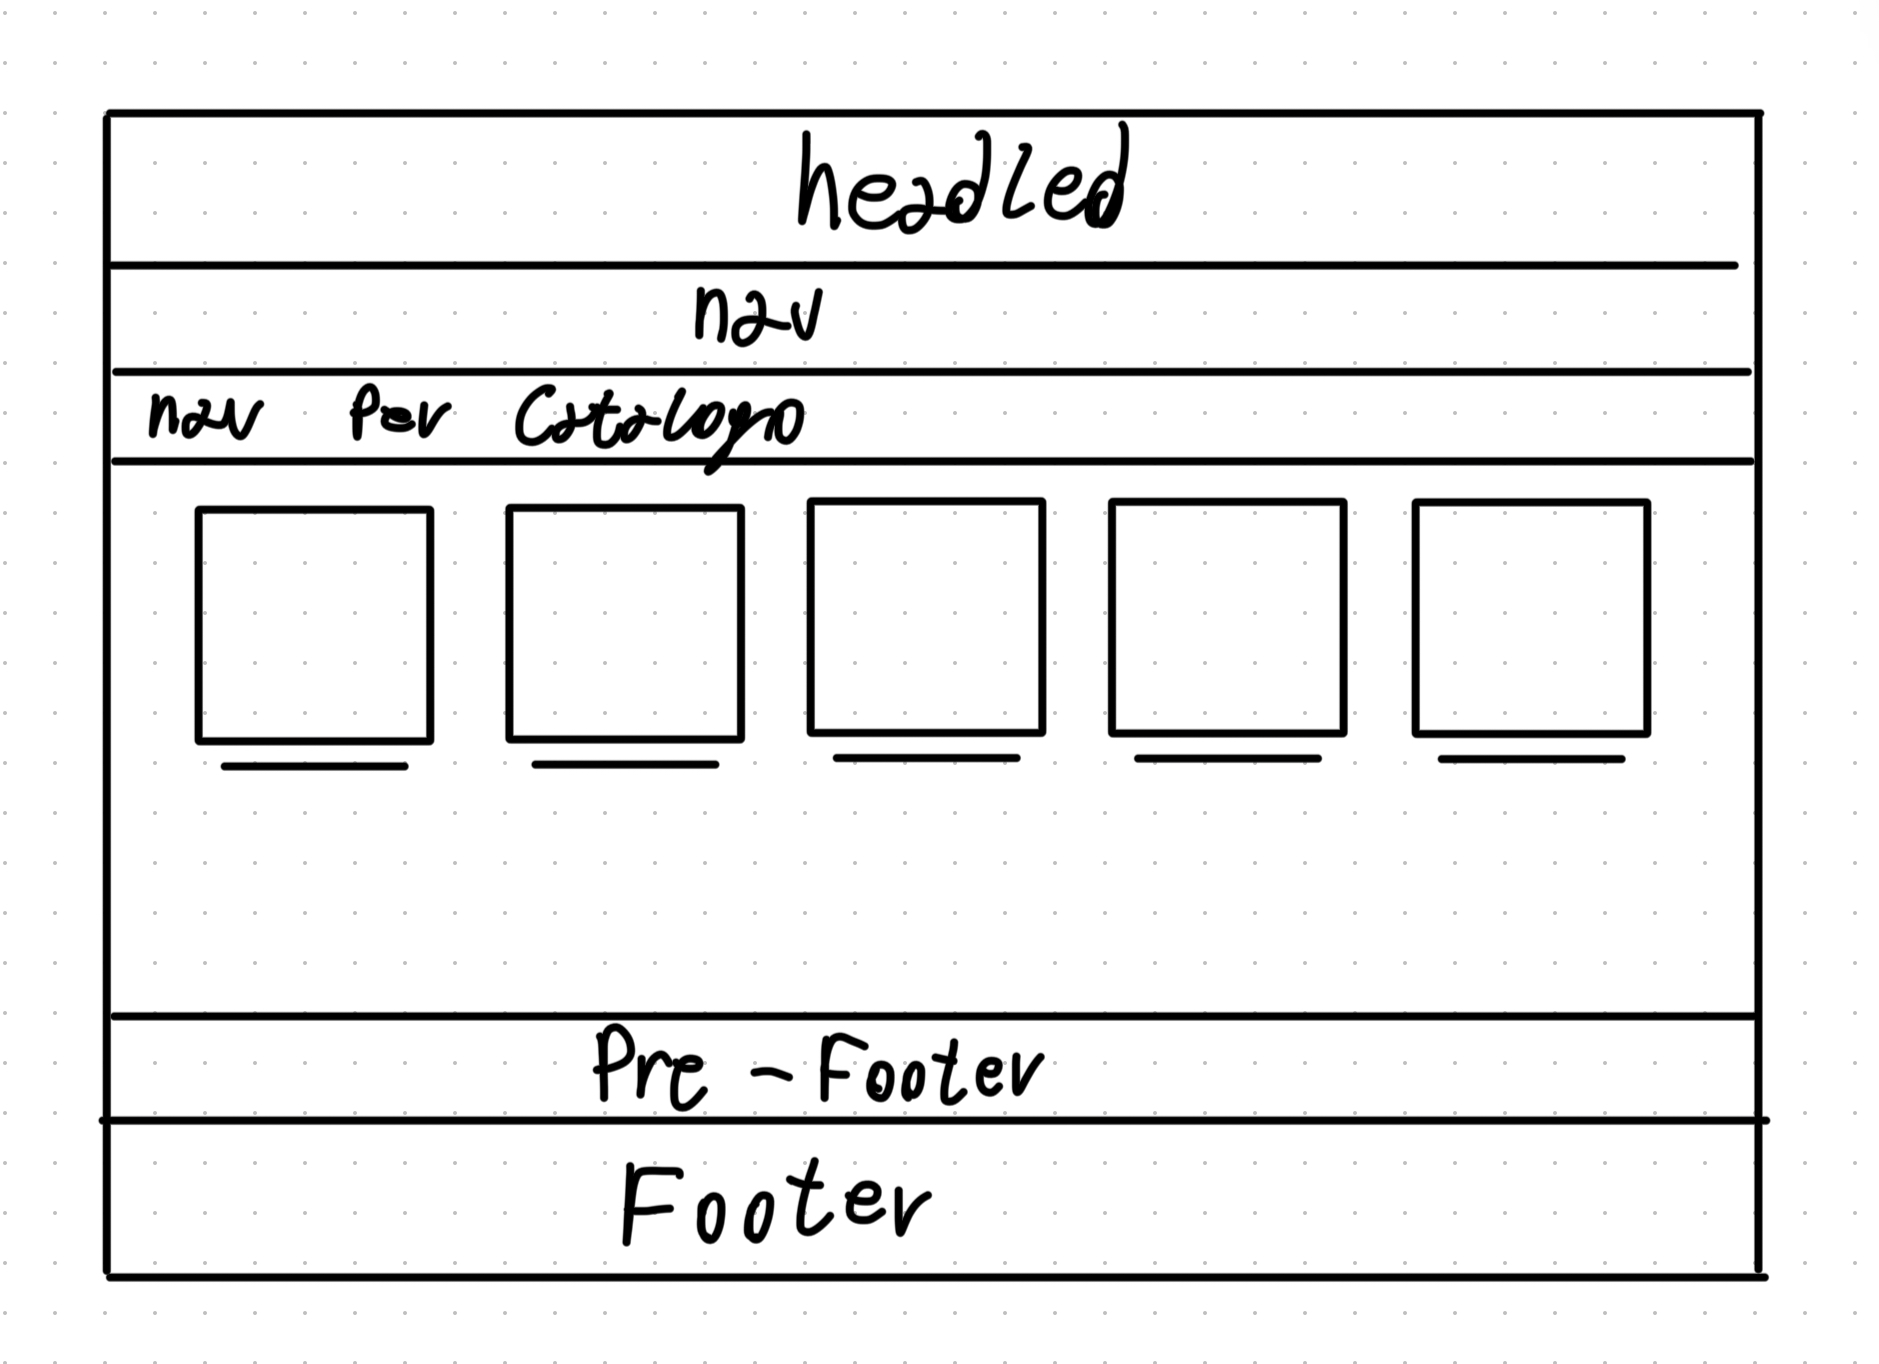 headled
nav
nav per Catalogo
Pre - Footer
Footer